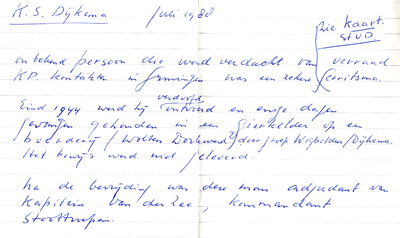 K.S. Dijkema juli 1980
zie kaart.
STUD.
onbekend persoon die werd verdacht van verraad
KP. kontakten in Groningen was een zekere Gerritsma.
Eind 1944 werd hij ontvoerd en enige dagen
verdoofd
gevangen gehouden in een gierkelder op een
boerderij (Wolters Dorkwerd?) door groep Wigbolden/Dijkema.
Het bewijs werd niet geleverd.
Na de bevrijding was deze man adjudant van
kapitein van der Zee, kommandant
Stoottroepen.